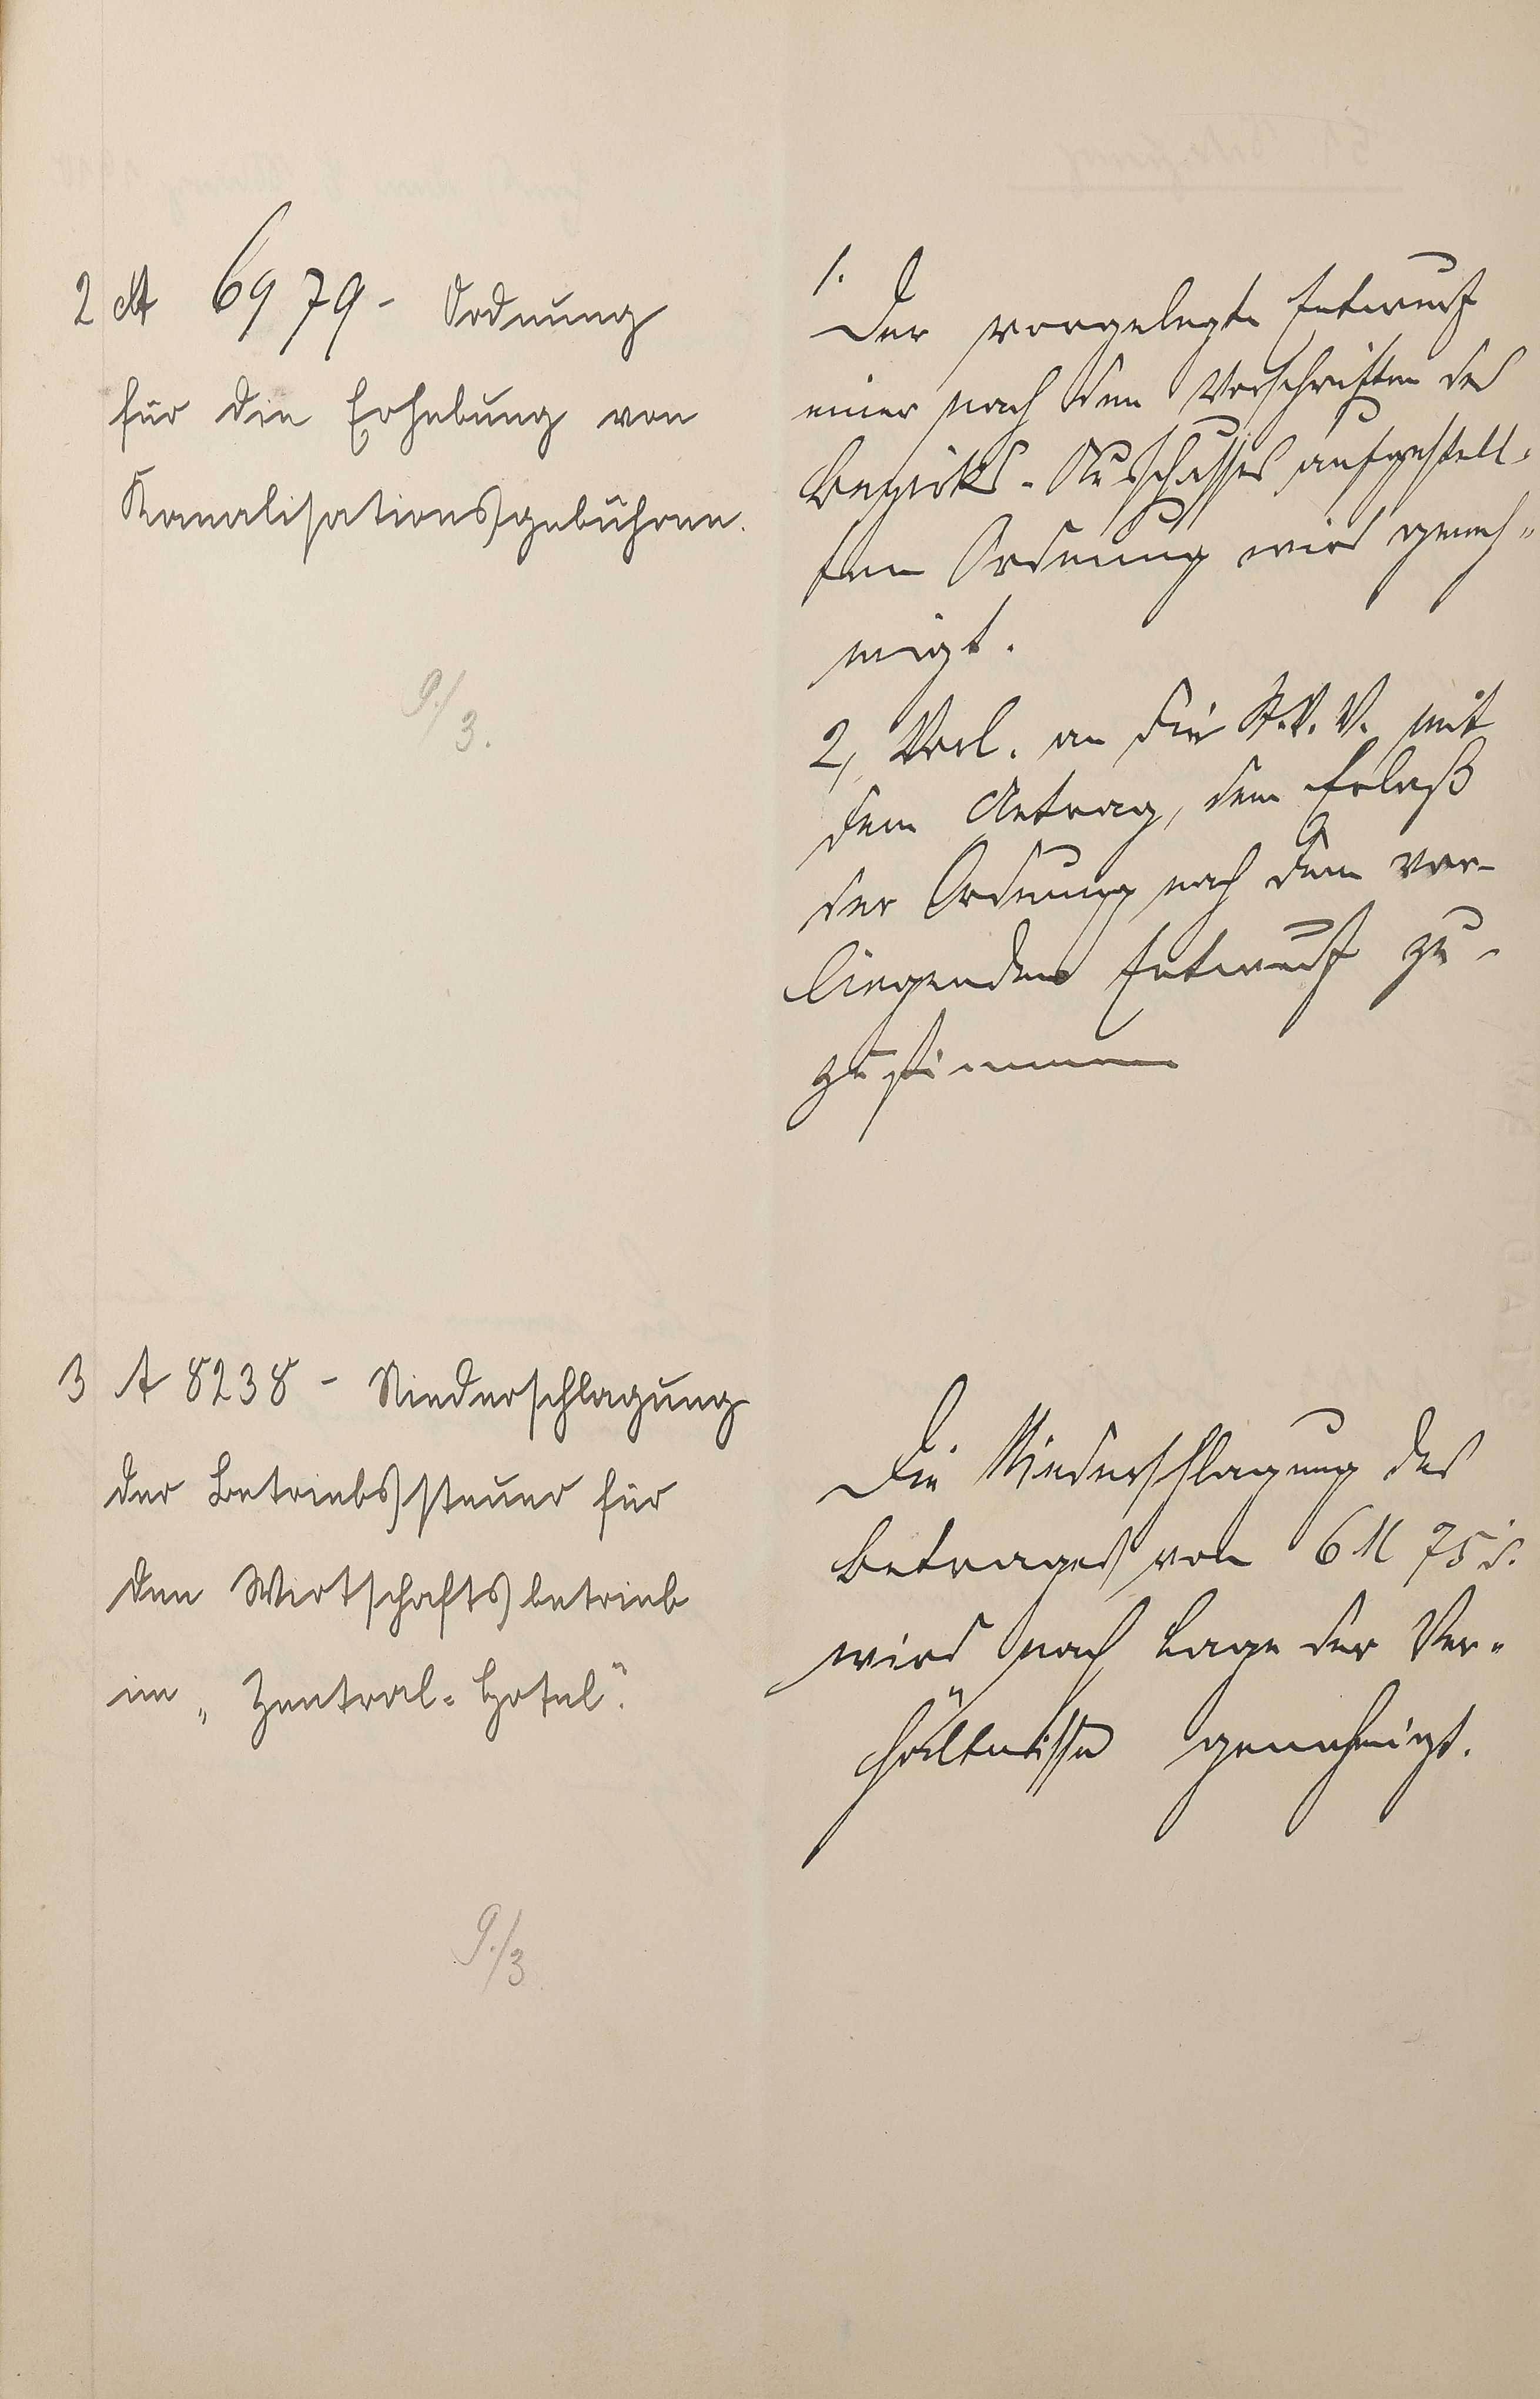 2 A 6979 - Ordnung
für die Erhebung von
Kanalisationsgebühren.
9./3.
1. Der vorgelegte Entwurf
einer nach den Vorschriften des
Bezirks-Ausschusses aufgestell-
ten Ordnung wird geneh-
migt.
2, Vorl. an die St.V.V. mit
dem Antrag, dem Erlaß
der Ordnung nach dem vor-
liegenden Entwurf zu-
zustimmen
3 A 8238 - Niederschlagung
der Betriebssteuer für
den Wirtschaftsbetrieb
im „Zentral-Hotel“.
9./3
Die Niederschlagung des
Betrages von 6 M 75 d.
wird nach Lage der Ver-
hältnisse genehmigt.